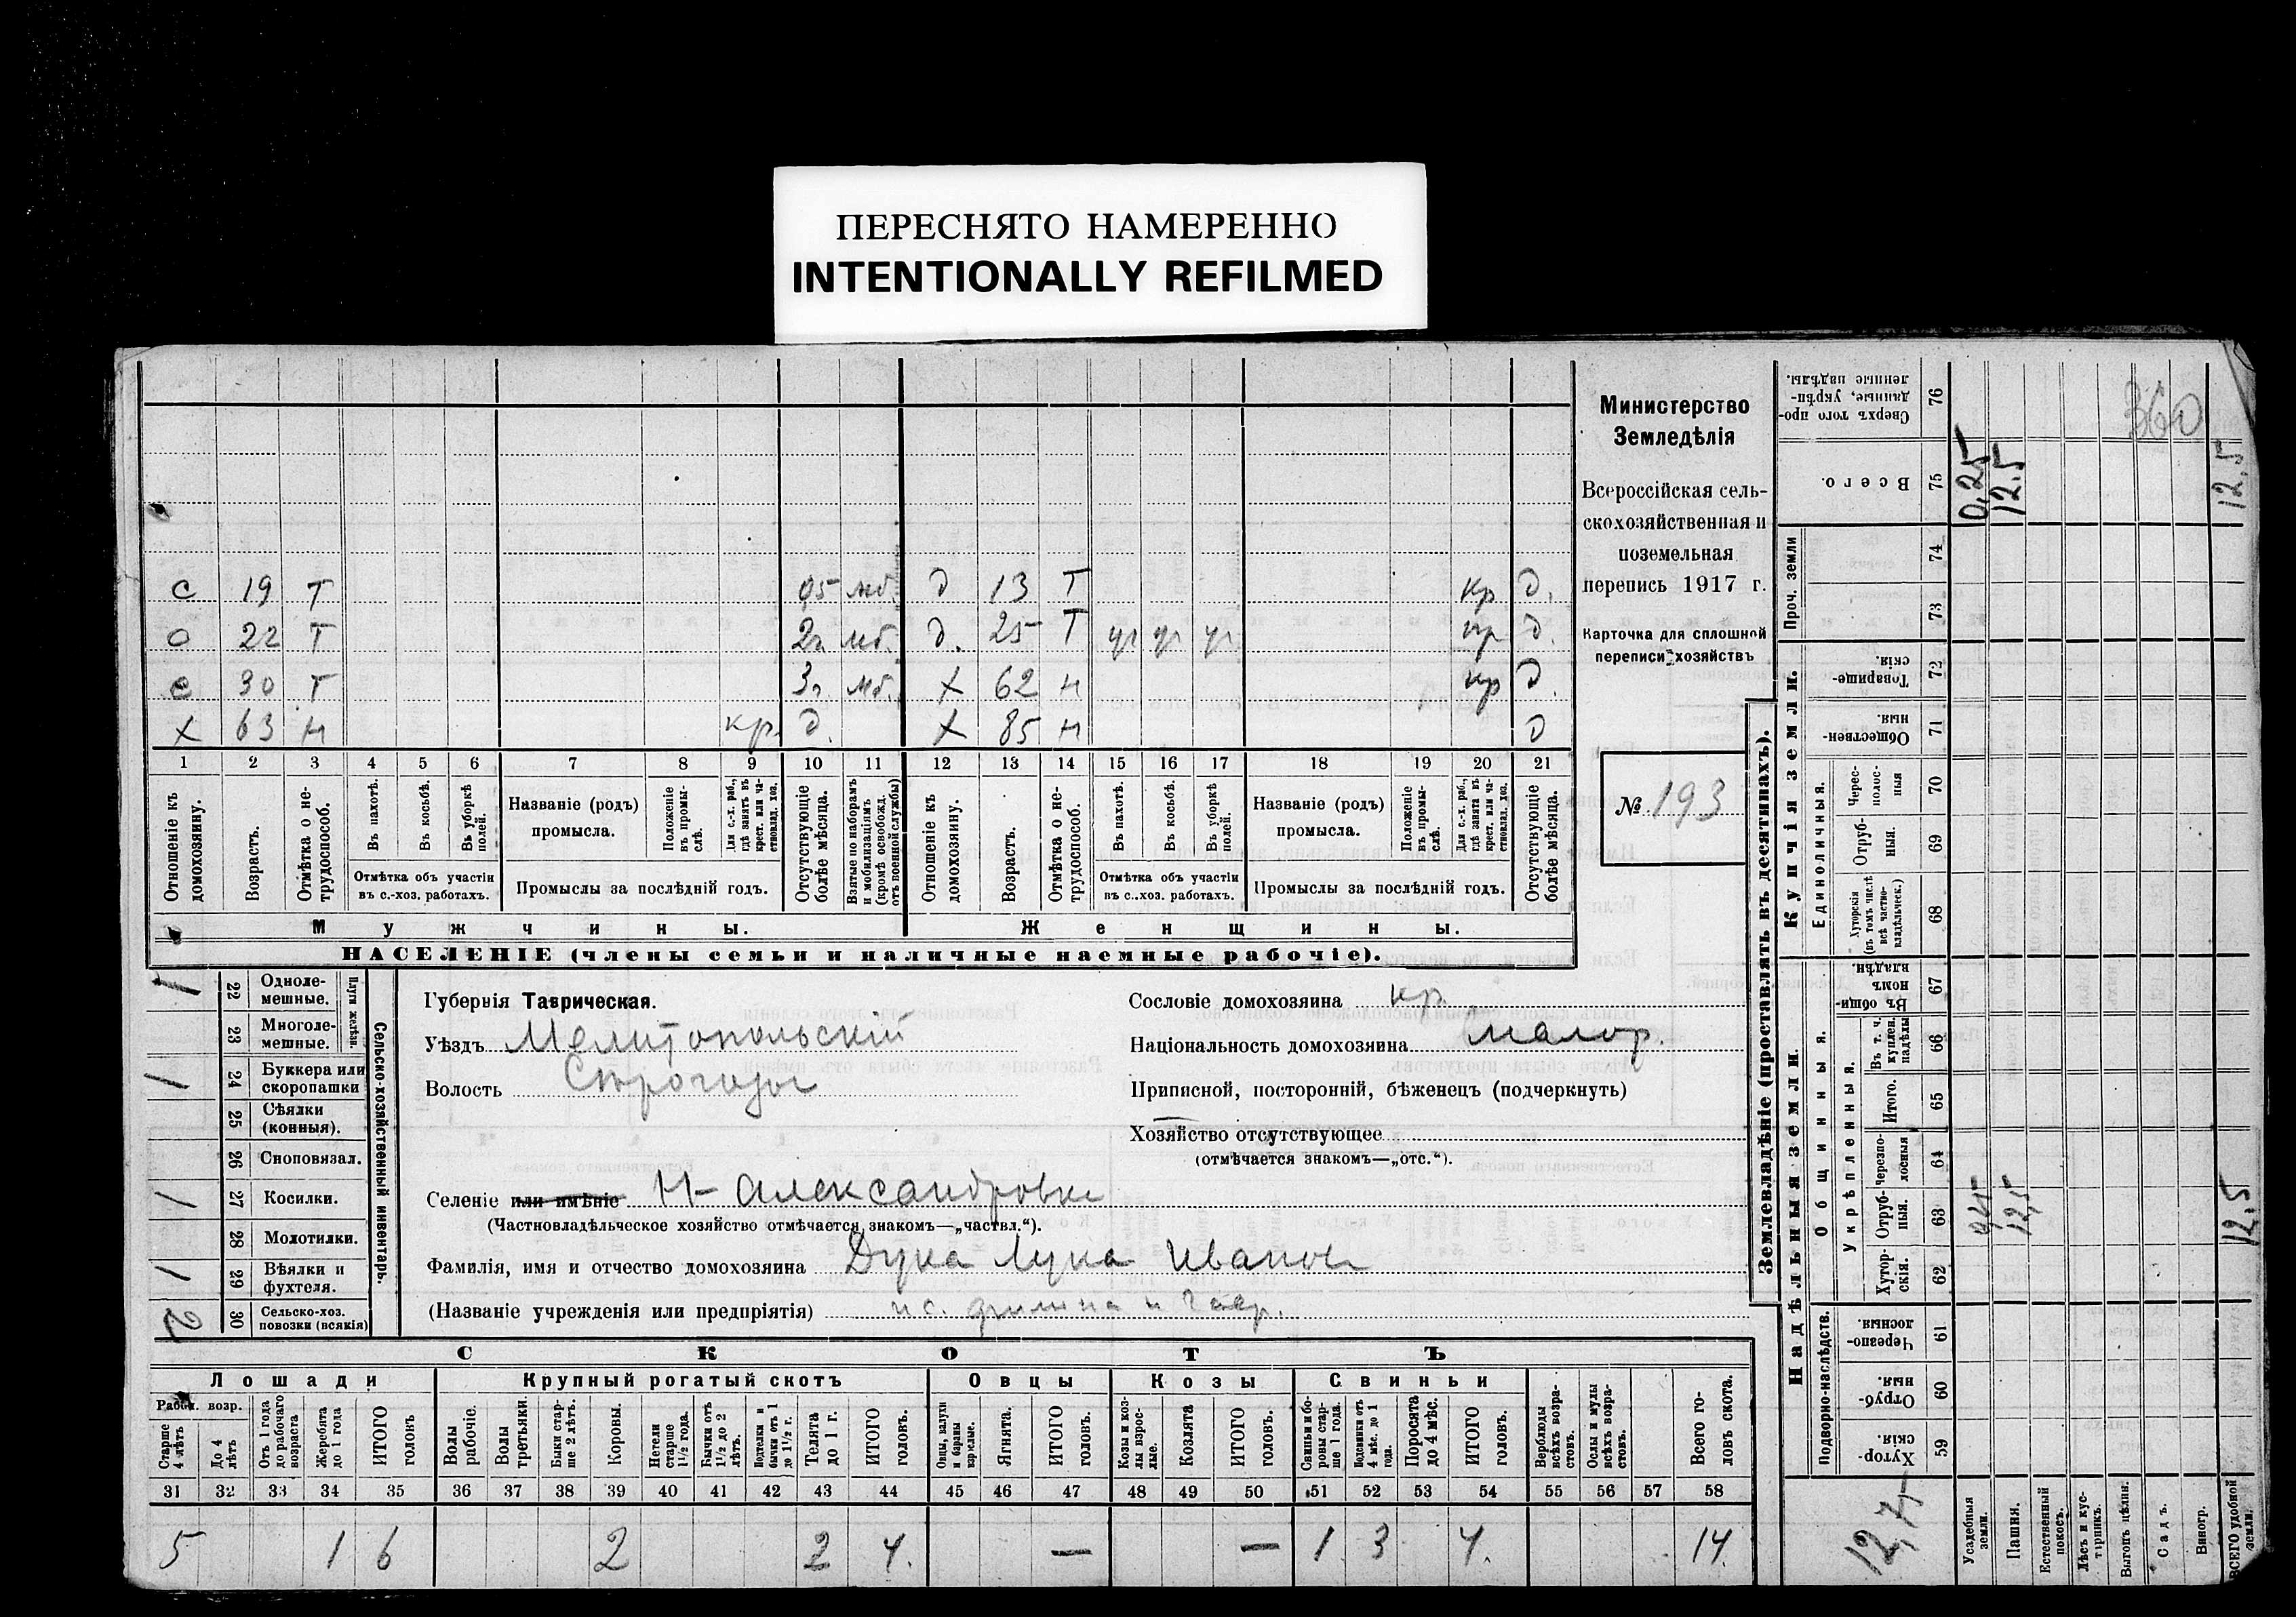 ПЕРЕСНЯТО НАМЕРЕННО
INTENTIONALLY REFILMED
Министерство
Земледѣлія
Всероссійская сель-
скохозяйственная и
поземельная
перепись 1917 г.
Карточка для сплошной
переписи хозяйствъ
№ 193
с 19 Т 05 мб. д 13 Т кр д.
с 22 Т 2г. мб. д. 25 Т уг уг уг кр д.
с 30 Т 3г. мб. х 62 н кр д.
х 63 н кр. д. х 85 н д
1 2 3 4 5 6 7 8 9 10 11 12 13 14 15 16 17 18 19 20 21
Отношеніе къ домохозяину.
Возрастъ.
Отмѣтка о не-трудоспособ.
Въ пахотѣ.
Въ косьбѣ.
Въ уборкѣ полей.
Отмѣтка объ участіи
въ с.-хоз. работахъ.
Названіе (родъ)
промысла.
Положеніе въ промы-слѣ.
Для с.-х. раб., гдѣ занятъ въ крест. или ча-стновлад. хоз.
Промыслы за послѣдній годъ.
Отсутствующіе болѣе мѣсяца.
Взятые по наборамъ и мобилизаціямъ (кромѣ освобожд. отъ военной службы)
Отношеніе къ домохозяину.
Возрастъ.
Отмѣтка о не-трудоспособ.
Въ пахотѣ.
Въ косьбѣ.
Въ уборкѣ полей.
Отмѣтка объ участіи
въ с.-хоз. работахъ.
Названіе (родъ)
промысла.
Положеніе въ промы-слѣ.
Для с.-х. раб., гдѣ занята въ крест. или ча-стновлад. хоз.
Промыслы за послѣдній годъ.
Отсутствующіе болѣе мѣсяца.
Мужчины. Женщины.
НАСЕЛЕНІЕ (члены семьи и наличные наемные рабочіе).
1 22 Одноле-мешные.
23 Многоле-мешные.
Плуги желѣзн.
1 24 Буккера или скоропашки
25 Сѣялки (конныя).
26 Сноповязал.
1 27 Косилки.
28 Молотилки.
1 29 Вѣялки и фухтеля.
2 30 Сельско-хоз. повозки (всякія)
Сельско-хозяйственный инвентарь.
Губернія Таврическая.
Уѣздъ Мелитопольскій
Волость Сѣрогозы
Сословіе домохозяина кр.
Національность домохозяина малор.
Приписной, посторонній, бѣженецъ (подчеркнуть)
Хозяйство отсутствующее
(отмѣчается знакомъ—„отс.“).
Селеніе или имѣніе Н-Александровка
(Частновладѣльческое хозяйство отмѣчается знакомъ—„частвл.“).
Фамилія, имя и отчество домохозяина Дука Лука Иванов
(Названіе учрежденія или предпріятія)
СКОТЪ
Лошади Крупный рогатый скотъ Овцы Козы Свиньи
Рабоч. возр.
Старше 4 лѣтъ
До 4 лѣтъ
Отъ 1 года до рабочаго возраста
Жеребята до 1 года
ИТОГО головъ
Волы рабочіе.
Волы третьяки.
Быки стар-ше 2 лѣтъ.
Коровы.
Нетели старше 1½ года.
Бычки отъ 1½ до 2 лѣтъ.
Подтелки и бычки отъ 1 до 1½ г.
Телята до 1 г.
ИТОГО головъ.
Овцы, валухи и бараны взрослые.
Ягнята.
ИТОГО головъ.
Козы и коз-лы взрос-лые.
Козлята
ИТОГО головъ.
Свиньи и бо-ровы стар-ше 1 года.
Подсвинки отъ 4 мѣс. до 1 года.
Поросята до 4 мѣс.
ИТОГО головъ.
Верблюды всѣхъ возра-стовъ.
Ослы и мулы всѣхъ возра-стовъ.
Всего го-ловъ скота.
31 32 33 34 35 36 37 38 39 40 41 42 43 44 45 46 47 48 49 50 51 52 53 54 55 56 57 58
5 1 6 2 2 4. — — 1 3 4. 14.
Землевладѣніе (проставлять въ десятинахъ).
Надѣльныя земли.
Подворно-наслѣдств.
Хутор-скія 59
Отруб-ныя 60
Черезпо-лосныя 61
Общинныя.
Укрѣпленныя.
Хутор-скія. 62
Отруб-ныя. 63
Черезпо-лосныя 64
Итого. 65
Въ т. ч. куплен. надѣлы 66
Въ общи-номъ владѣн. 67
Купчія земли.
Единоличныя.
Хуторскія (въ томъ числѣ всѣ частно-владѣльческ.) 68
Отруб-ныя. 69
Черес-полос-ныя 70
Обществен-ныя 71
Товарище-скія. 72
Проч. земли
73
74
Всего. 75
Сверхъ того про-данные, укрѣп-ленные надѣлы. 76
Усадебныя земли.
Пашня.
Естественный покосъ.
Лѣсъ и кус-тарникъ.
Выгонъ цѣлин.
Садъ.
Виногр.
ВСЕГО удобной земли.
0,25
12,5
12,5
0,25
12,5
12,5
12,75
360